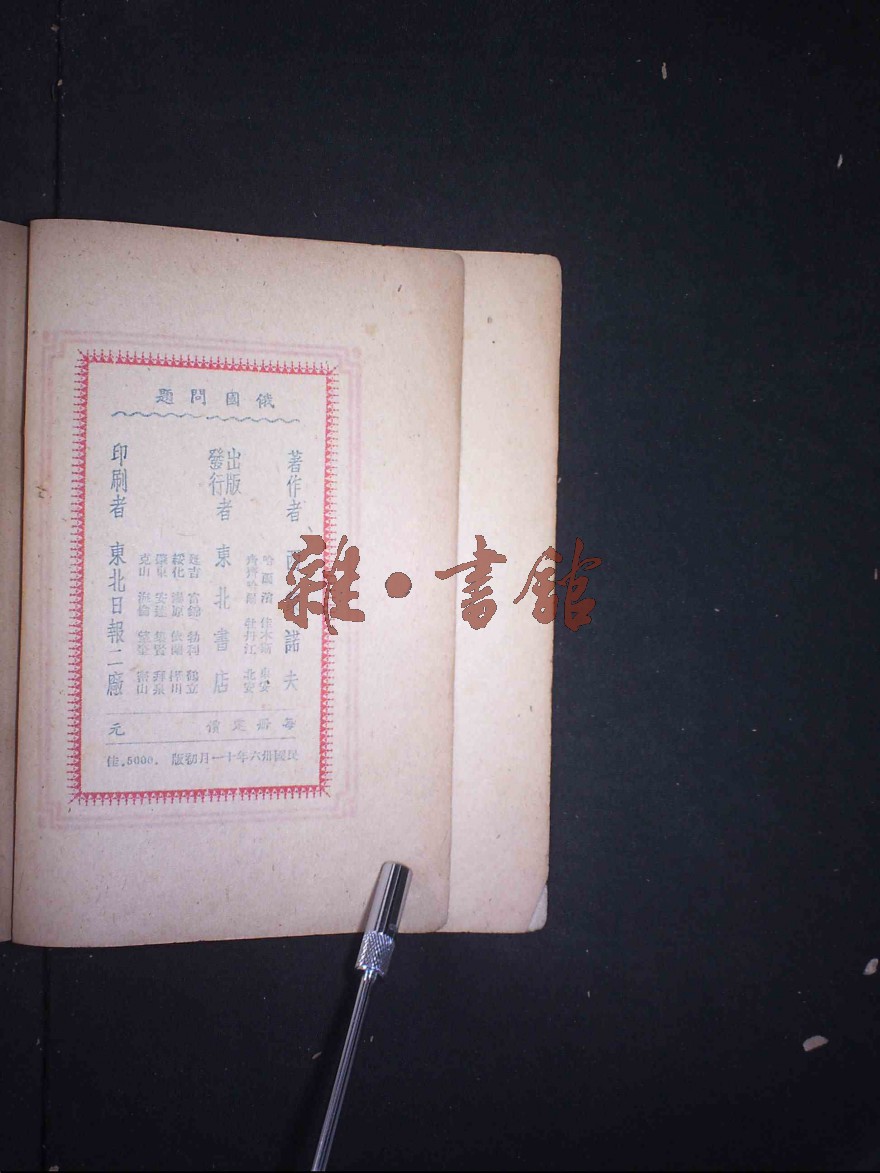 俄國問題
著作者 西 諾夫
出版
發行
者 東北書店
哈爾濱 佳木斯 東安
齊齊哈爾 牡丹江 北安
延吉 富錦 勃利 鶴立
綏化 依蘭
肇東 安達 集賢 拜泉
克山 海倫 望奎
印刷者 東北日報二廠
每册定價 元
民國卅六年十一月初版 .5000.佳
雜·書館